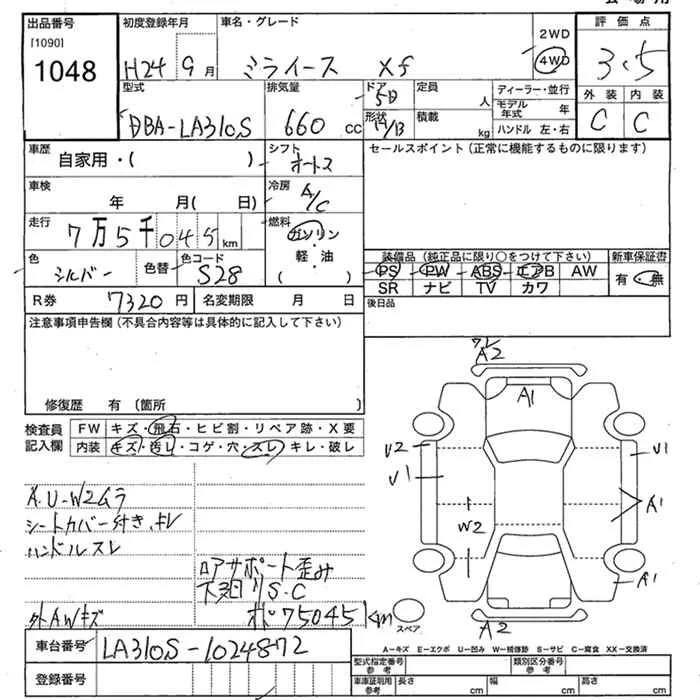 出品番号
[1090]
1048
初度登録年月
H24 9月
車名・グレード
ミライース Xf
2WD
4WD
評価点
3.5
外装 内装
C C
型式
DBA-LA310S
排気量
660 cc
ドア
5D
形状
定員
人
積載
kg
ディーラー・並行
モデル年式 年
ハンドル 左・右
車歴
自家用・( )
シフト
オートス
セールスポイント(正常に機能するものに限ります)
車検
年 月( 日)
冷房
A/C
走行
7万5千045km
燃料
ガソリン
軽・油
( )
色
シルバー
色替
色コード
S28
装備品(純正品に限り○をつけて下さい)
新車保証書
PS PW ABS エアB AW
有・無
SR ナビ TV カワ
R券 7320円
名変期限 月 日
後日品
注意事項申告欄(不具合内容等は具体的に記入して下さい)
修復歴 有(箇所 )
検査員記入欄
FW キズ・飛石・ヒビ割・リペア跡・X要
内装 キズ・汚レ・コゲ・穴・スレ・キレ・破レ
A.U-W2ムラ
シートカバー付き、キレ
ハンドルスレ
ロアサポート歪み
下廻りS.C
外AWキズ
ポ75045km
A2
A1
U2
U1
U1
A1
W2
A1
A2
スペア
A-キズ E-エクボ U-凹み W-補修跡 S-サビ C-腐食 XX-交換済
車台番号 LA310S-1024872
登録番号
型式指定番号 参考
類別区分番号 参考
車庫証明用 参考
長さ cm 幅 cm 高さ cm